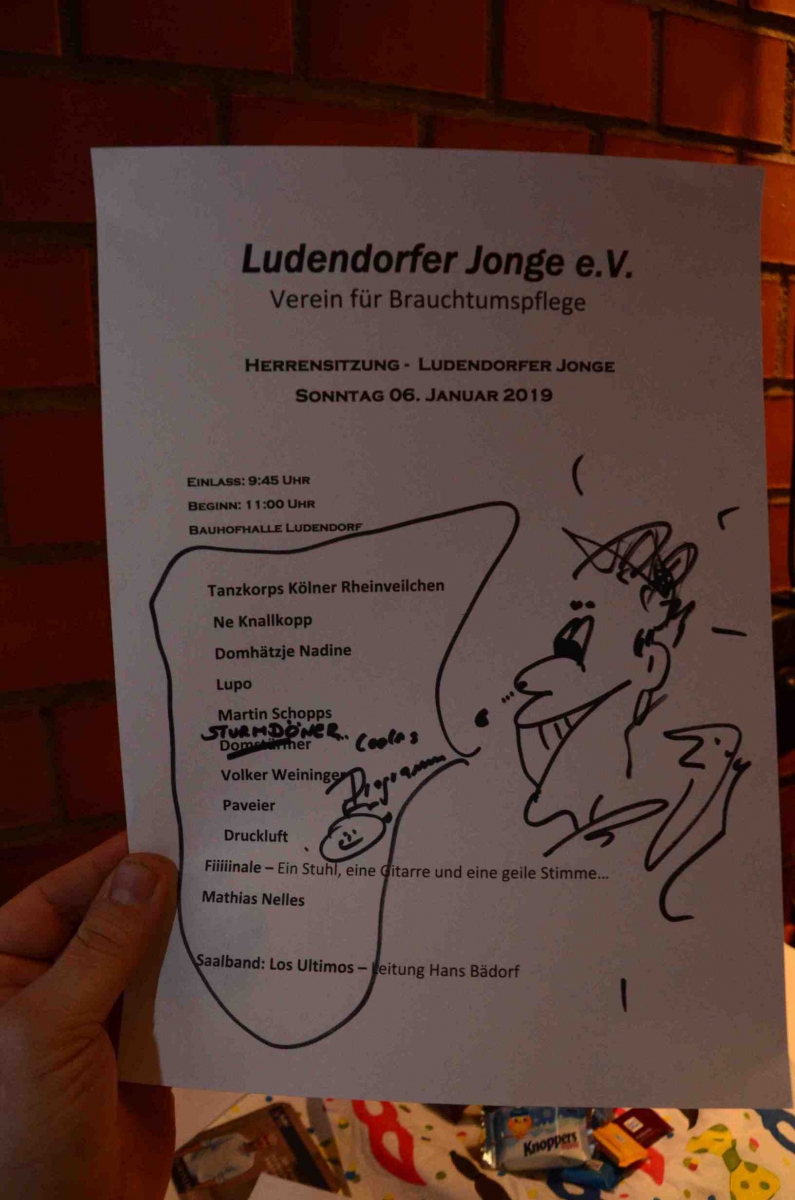 Ludendorfer Jonge e.V.
Verein für Brauchtumspflege
HERRENSITZUNG - LUDENDORFER JONGE
SONNTAG 06. JANUAR 2019
EINLASS: 9:45 UHR
BEGINN: 11:00 UHR
BAUHOFHALLE LUDENDORF
Tanzkorps Kölner Rheinveilchen
Ne Knallkopp
Domhätzje Nadine
Lupo
Martin Schopps
STURMDÖNER..
Domstürmer
Cooles
Programm
Volker Weininger
Paveier
Druckluft
Fiiiiinale – Ein Stuhl, eine Gitarre und eine geile Stimme...
Mathias Nelles
Saalband: Los Ultimos – Leitung Hans Bädorf
Knoppers